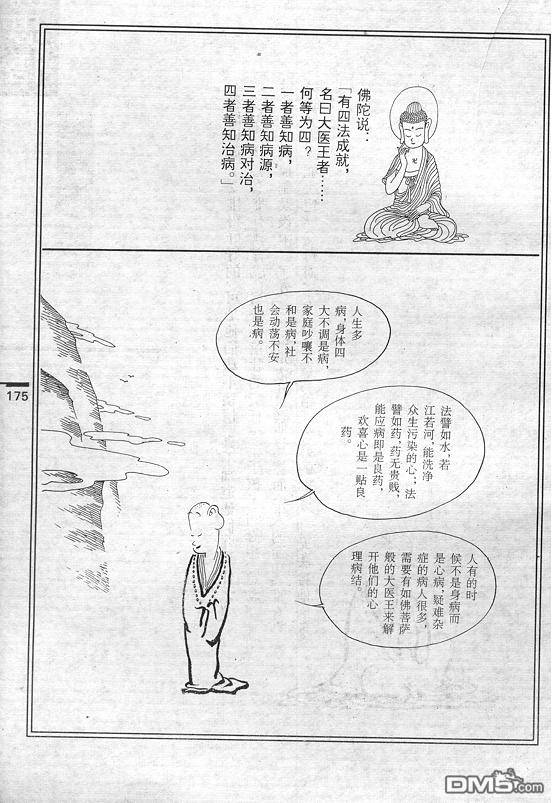 佛陀说：
「有四法成就，
名曰大医王者……
何等为四？
一者善知病，
二者善知病源，
三者善知病对治，
四者善知治病。」
人生多
病，身体四
大不调是病，
家庭吵嚷不
和是病，社
会动荡不安
也是病。
法譬如水，若
江若河，能洗净
众生污染的心；法
譬如药，药无贵贱，
能应病即是良药，
欢喜心是一贴良
药。
人有的时
候不是身病而
是心病，疑难杂
症的病人很多，
需要有如佛菩萨
般的大医王来解
开他们的心
理病结。
175
DM5.com